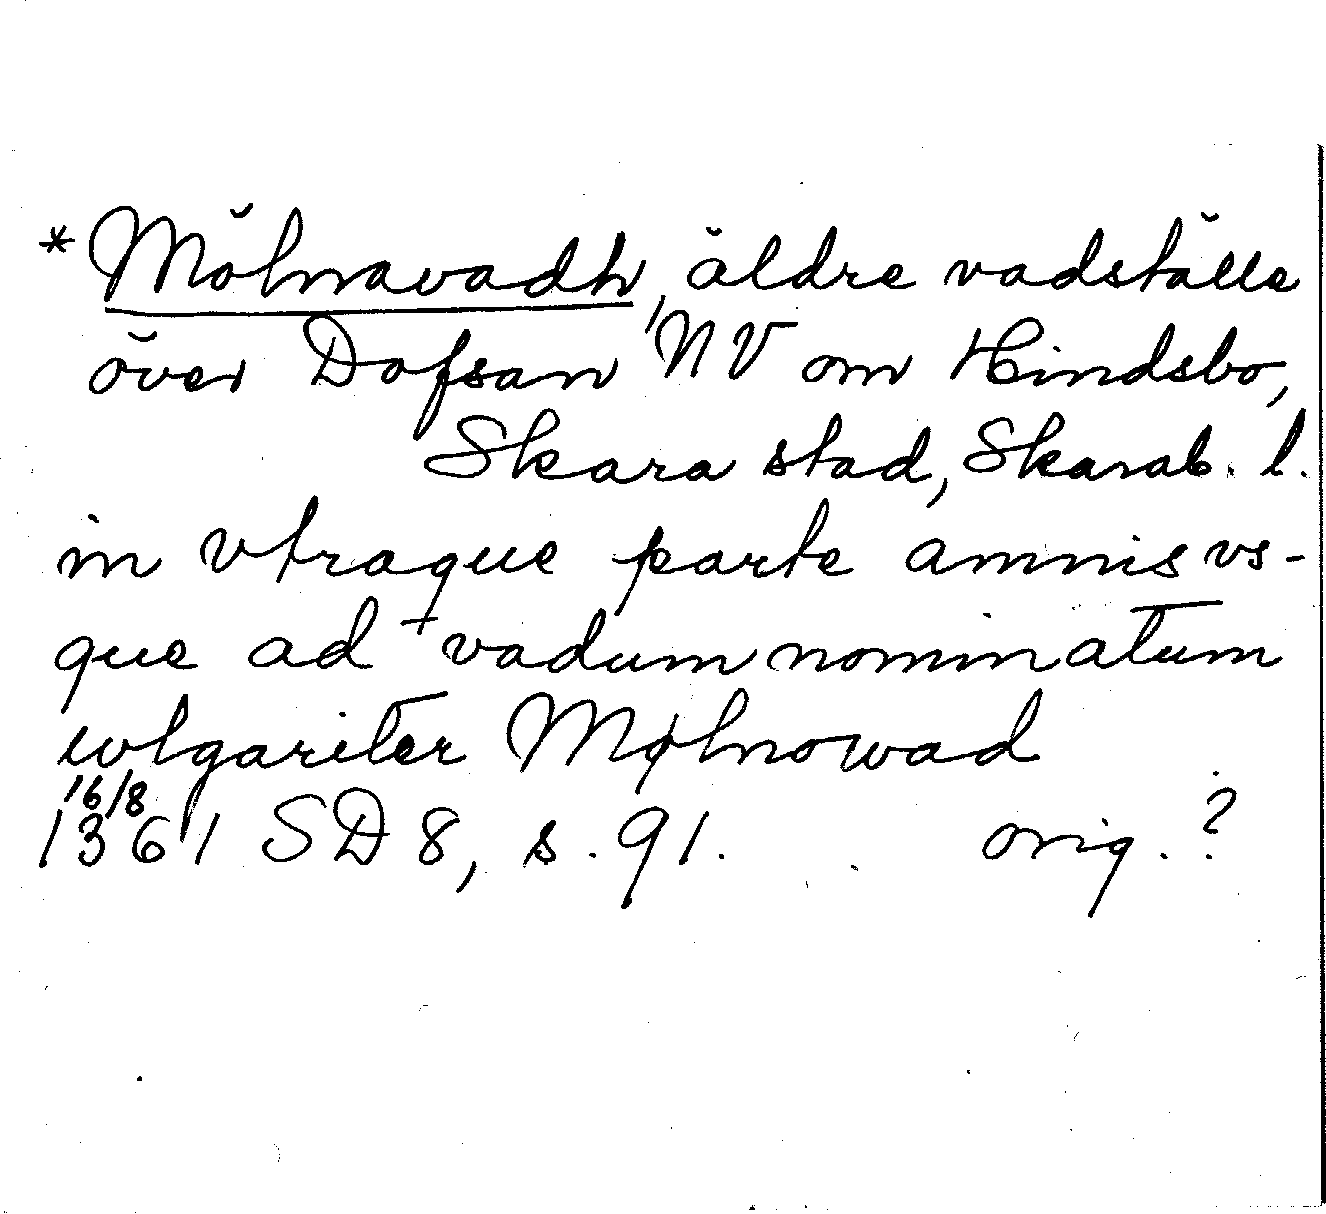 *Mölnavadh, äldre vadställe
över Dofsan NV om Hindsbo,
Skara stad, Skarab. l.
in vtraque parte amnis vs-
que ad vadum nominatum
wlgariter Mølnowad
16/8
1361 SD 8, s. 91. orig.?